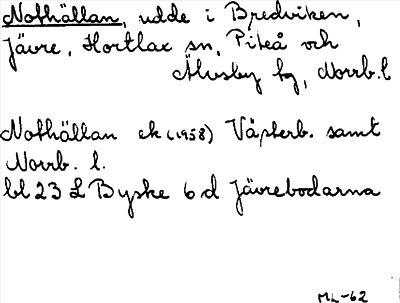 Nothällan, udde i Bredviken,
Jävre, Hortlax sn, Piteå och
Älvsby hg, Norrb. l
Nothällan ek (1958) Västerb. samt
Norrb. l.
bl 23 L Byske 6 d Jävrebodarna
ML-62